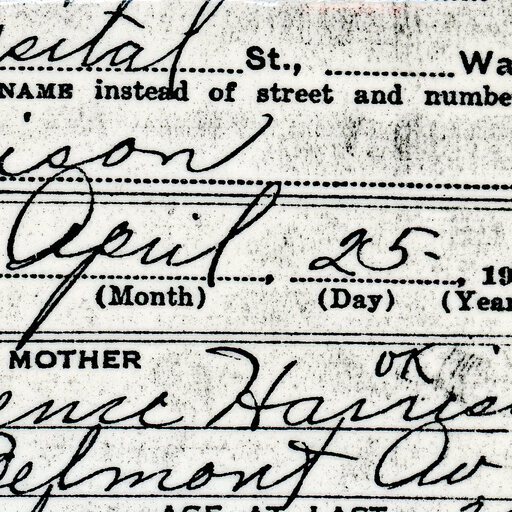 sital St., Wa
NAME instead of street and numbe
ison
April , 25 , 19
(Month) (Day) (Year
MOTHER OK
ence Harris
Belmont Av
AGE AT LAST